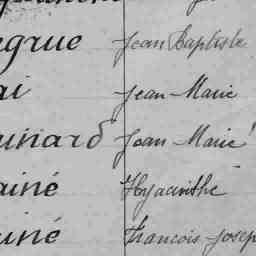 egrue Jean Baptiste
ai Jean Marie
uinard Jean Marie
ainé Hyacinthe
uiné Francois Josep